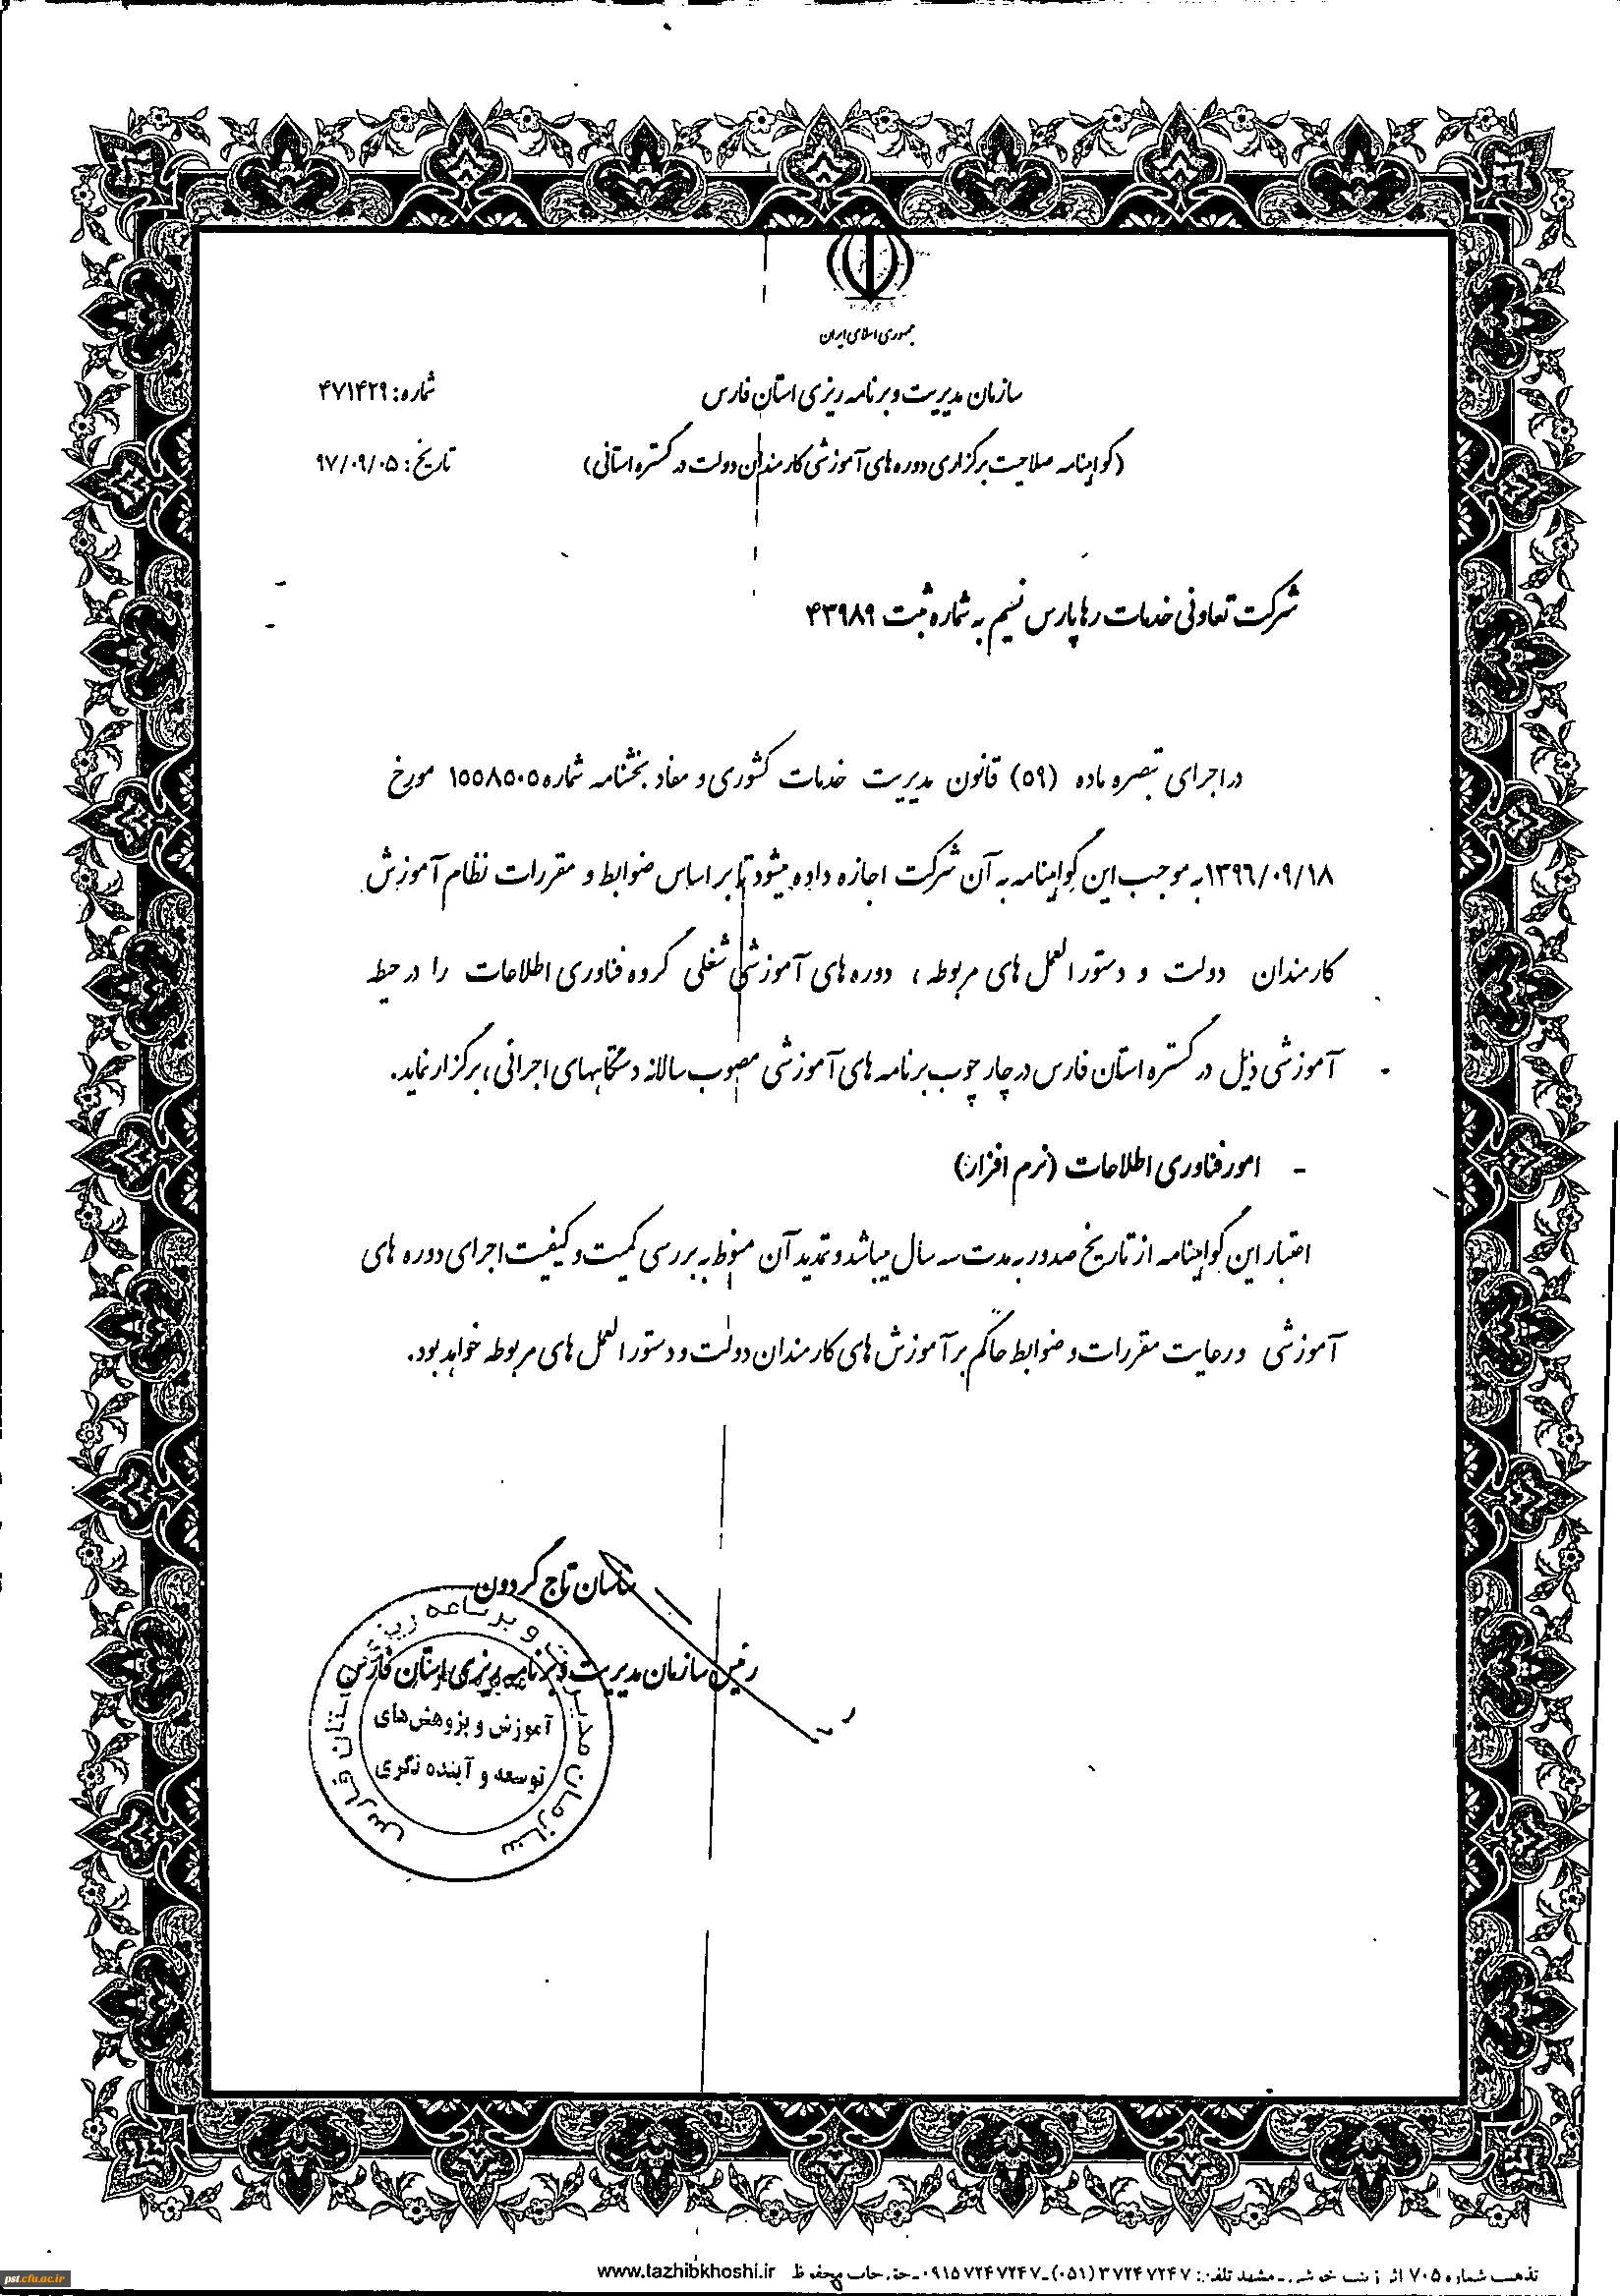 جمهوری اسلامی ایران
سازمان مدیریت و برنامه ریزی استان فارس
شماره: ۴۷۱۴۲۹
(گواهینامه صلاحیت برگزاری دوره های آموزشی کارمندان دولت در گستره استانی)
تاریخ: ۹۷/۰۹/۰۵
شرکت تعاونی خدمات رها پارس نسیم به شماره ثبت ۴۳۹۸۹
در اجرای تبصره ماده (۵۹) قانون مدیریت خدمات کشوری و مفاد بخشنامه شماره ۱۵۵۸۵۰۵ مورخ
۱۳۹۶/۰۹/۱۸ به موجب این گواهینامه به آن شرکت اجازه داده میشود تا بر اساس ضوابط و مقررات نظام آموزش
کارمندان دولت و دستورالعمل های مربوطه، دوره های آموزشی شغلی گروه فناوری اطلاعات را در حیطه
آموزشی ذیل در گستره استان فارس در چارچوب برنامه های آموزشی مصوب سالانه دستگاههای اجرائی، برگزار نماید.
- امور فناوری اطلاعات (نرم افزار)
اعتبار این گواهینامه از تاریخ صدور به مدت سه سال میباشد و تمدید آن منوط به بررسی کمیت و کیفیت اجرای دوره های
آموزشی و رعایت مقررات و ضوابط حاکم بر آموزش های کارمندان دولت و دستورالعمل های مربوطه خواهد بود.
ساسان تاج گردون
رئیس سازمان مدیریت و برنامه ریزی استان فارس
سازمان مدیریت و برنامه ریزی استان فارس
آموزش و پژوهش‌های
توسعه و آینده نگری
تذهیب شماره ۷۰۵ اثر زینت خوشی - مشهد تلفن: ۳۷۲۴۷۲۴۷ (۰۵۱) - ۰۹۱۵۷۲۴۷۲۴۷ - حق چاپ محفوظ www.tazhibkhoshi.ir
pst.cfu.ac.ir